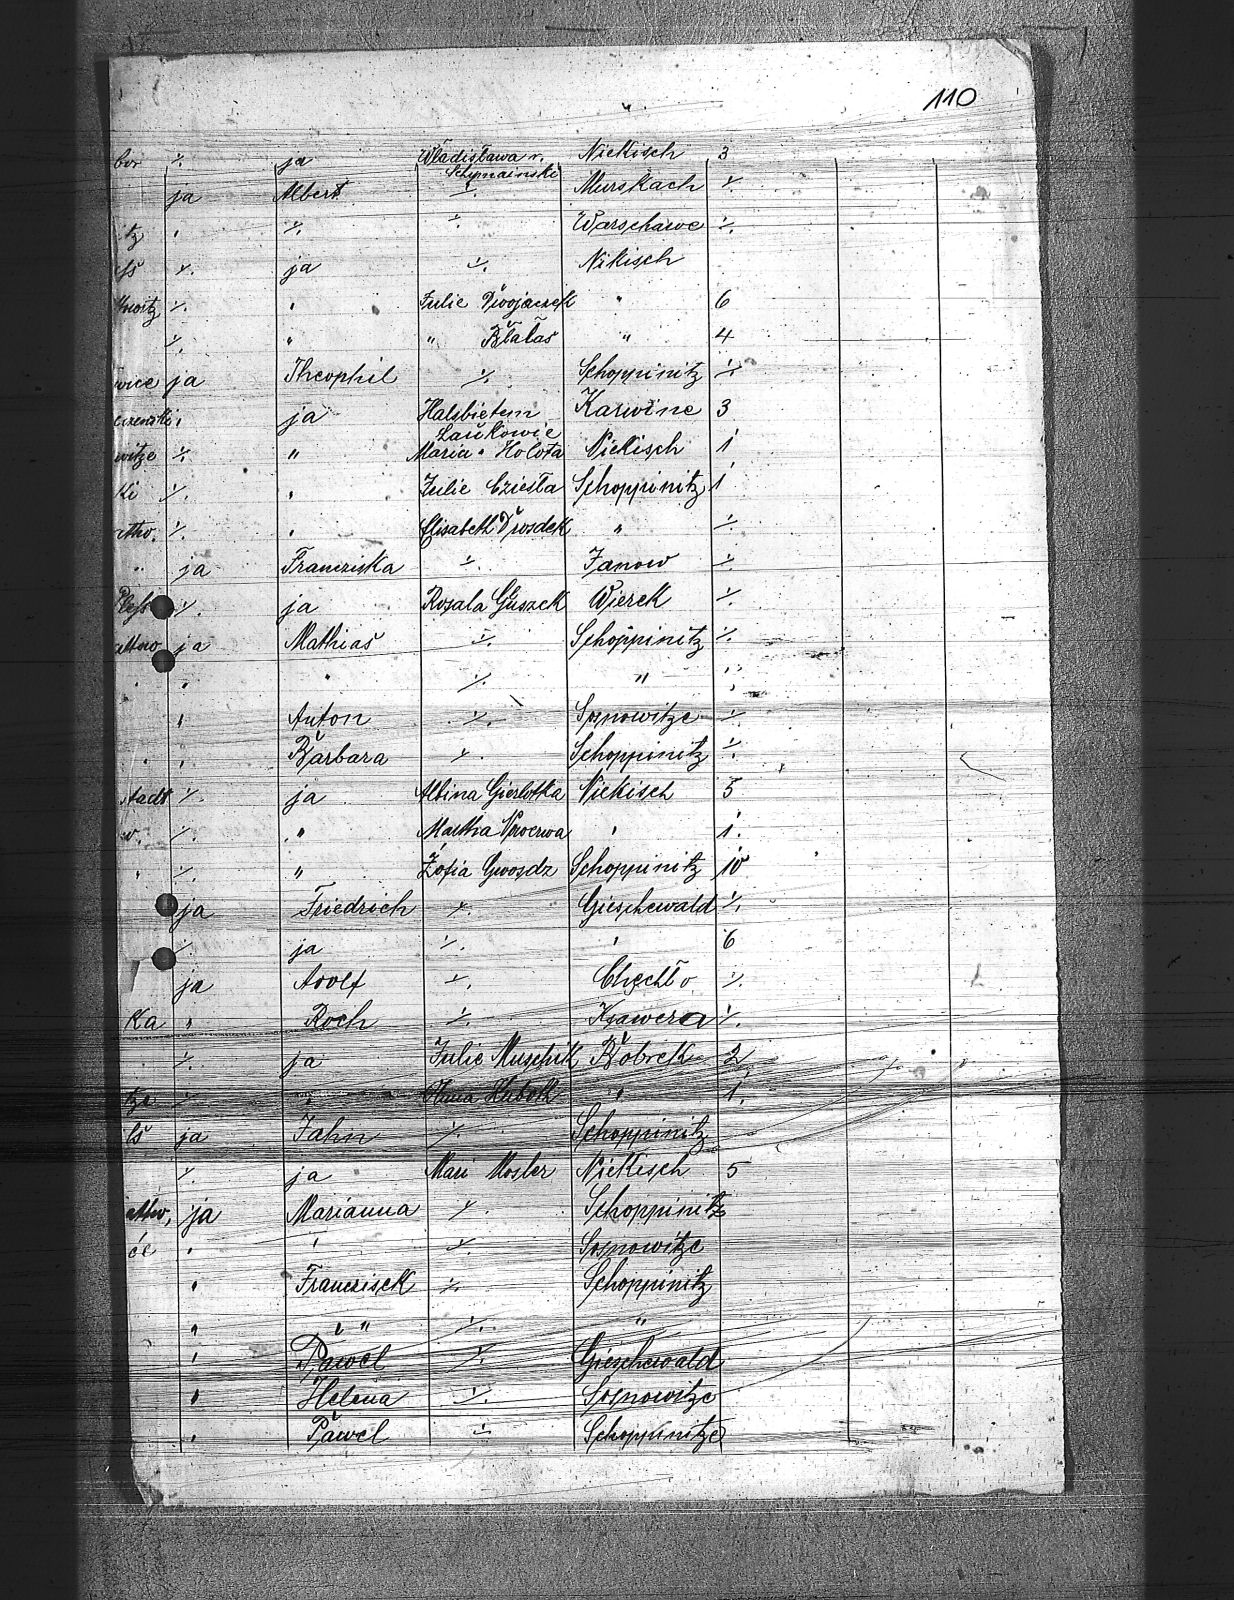 110
bor ·/. ja Wladislawa r. Nickisch 3
Schymainski
ja Albert ·/. Murskach ·/.
itz " ·/. ·/. Warschawe ·/.
·/. ja ·/. Nikisch
·/. " Julie Dwojaczek " 6
·/. " " Białas " 4
wice ja Theophil ·/. Schoppinitz ·/.
" ja Halsbietem Karwine 3
Laukowie
witze ·/. " Maria Holota Nickisch 1
Ki ·/. " Julie Cziesla Schoppinitz 1
·/. " Elisabeth Drosdek " ·/.
" ja Franziska ·/. Janow ·/.
Pless ·/. ja Rosala Guszek Wierek ·/.
ja Mathias ·/. Schoppinitz ·/.
" " " ·/. " "
" Anton ·/. Sosnowitze ·/.
" " Barbara ·/. Schoppinitz ·/.
stadt ·/. ja Albina Gierlotka Nickisch 5
w. ·/. " Martha " 1.
" ·/. " Zofia Gwosdz Schoppinitz 10
ja Friedrich ·/. Gieschewald ·/.
·/. ja ·/. " 6
ja Adolf ·/. Chechło ·/.
Ka " Roch ·/. Ksawera ·/.
·/. ja Julie Muschik Bobrek 2
·/. " " 1.
ls ja Jahn ·/. Schoppinitz
·/. ja Mari Mosler Nickisch 5
ja Marianna ·/. Schoppinitz
ce " " ·/. Sosnowitze
" Franzisek ·/. Schoppinitz
" " " ·/. "
" Pawel ·/. Gieschewald
" Helena ·/. Sosnowitze
" Pawel ·/. Schoppinitze